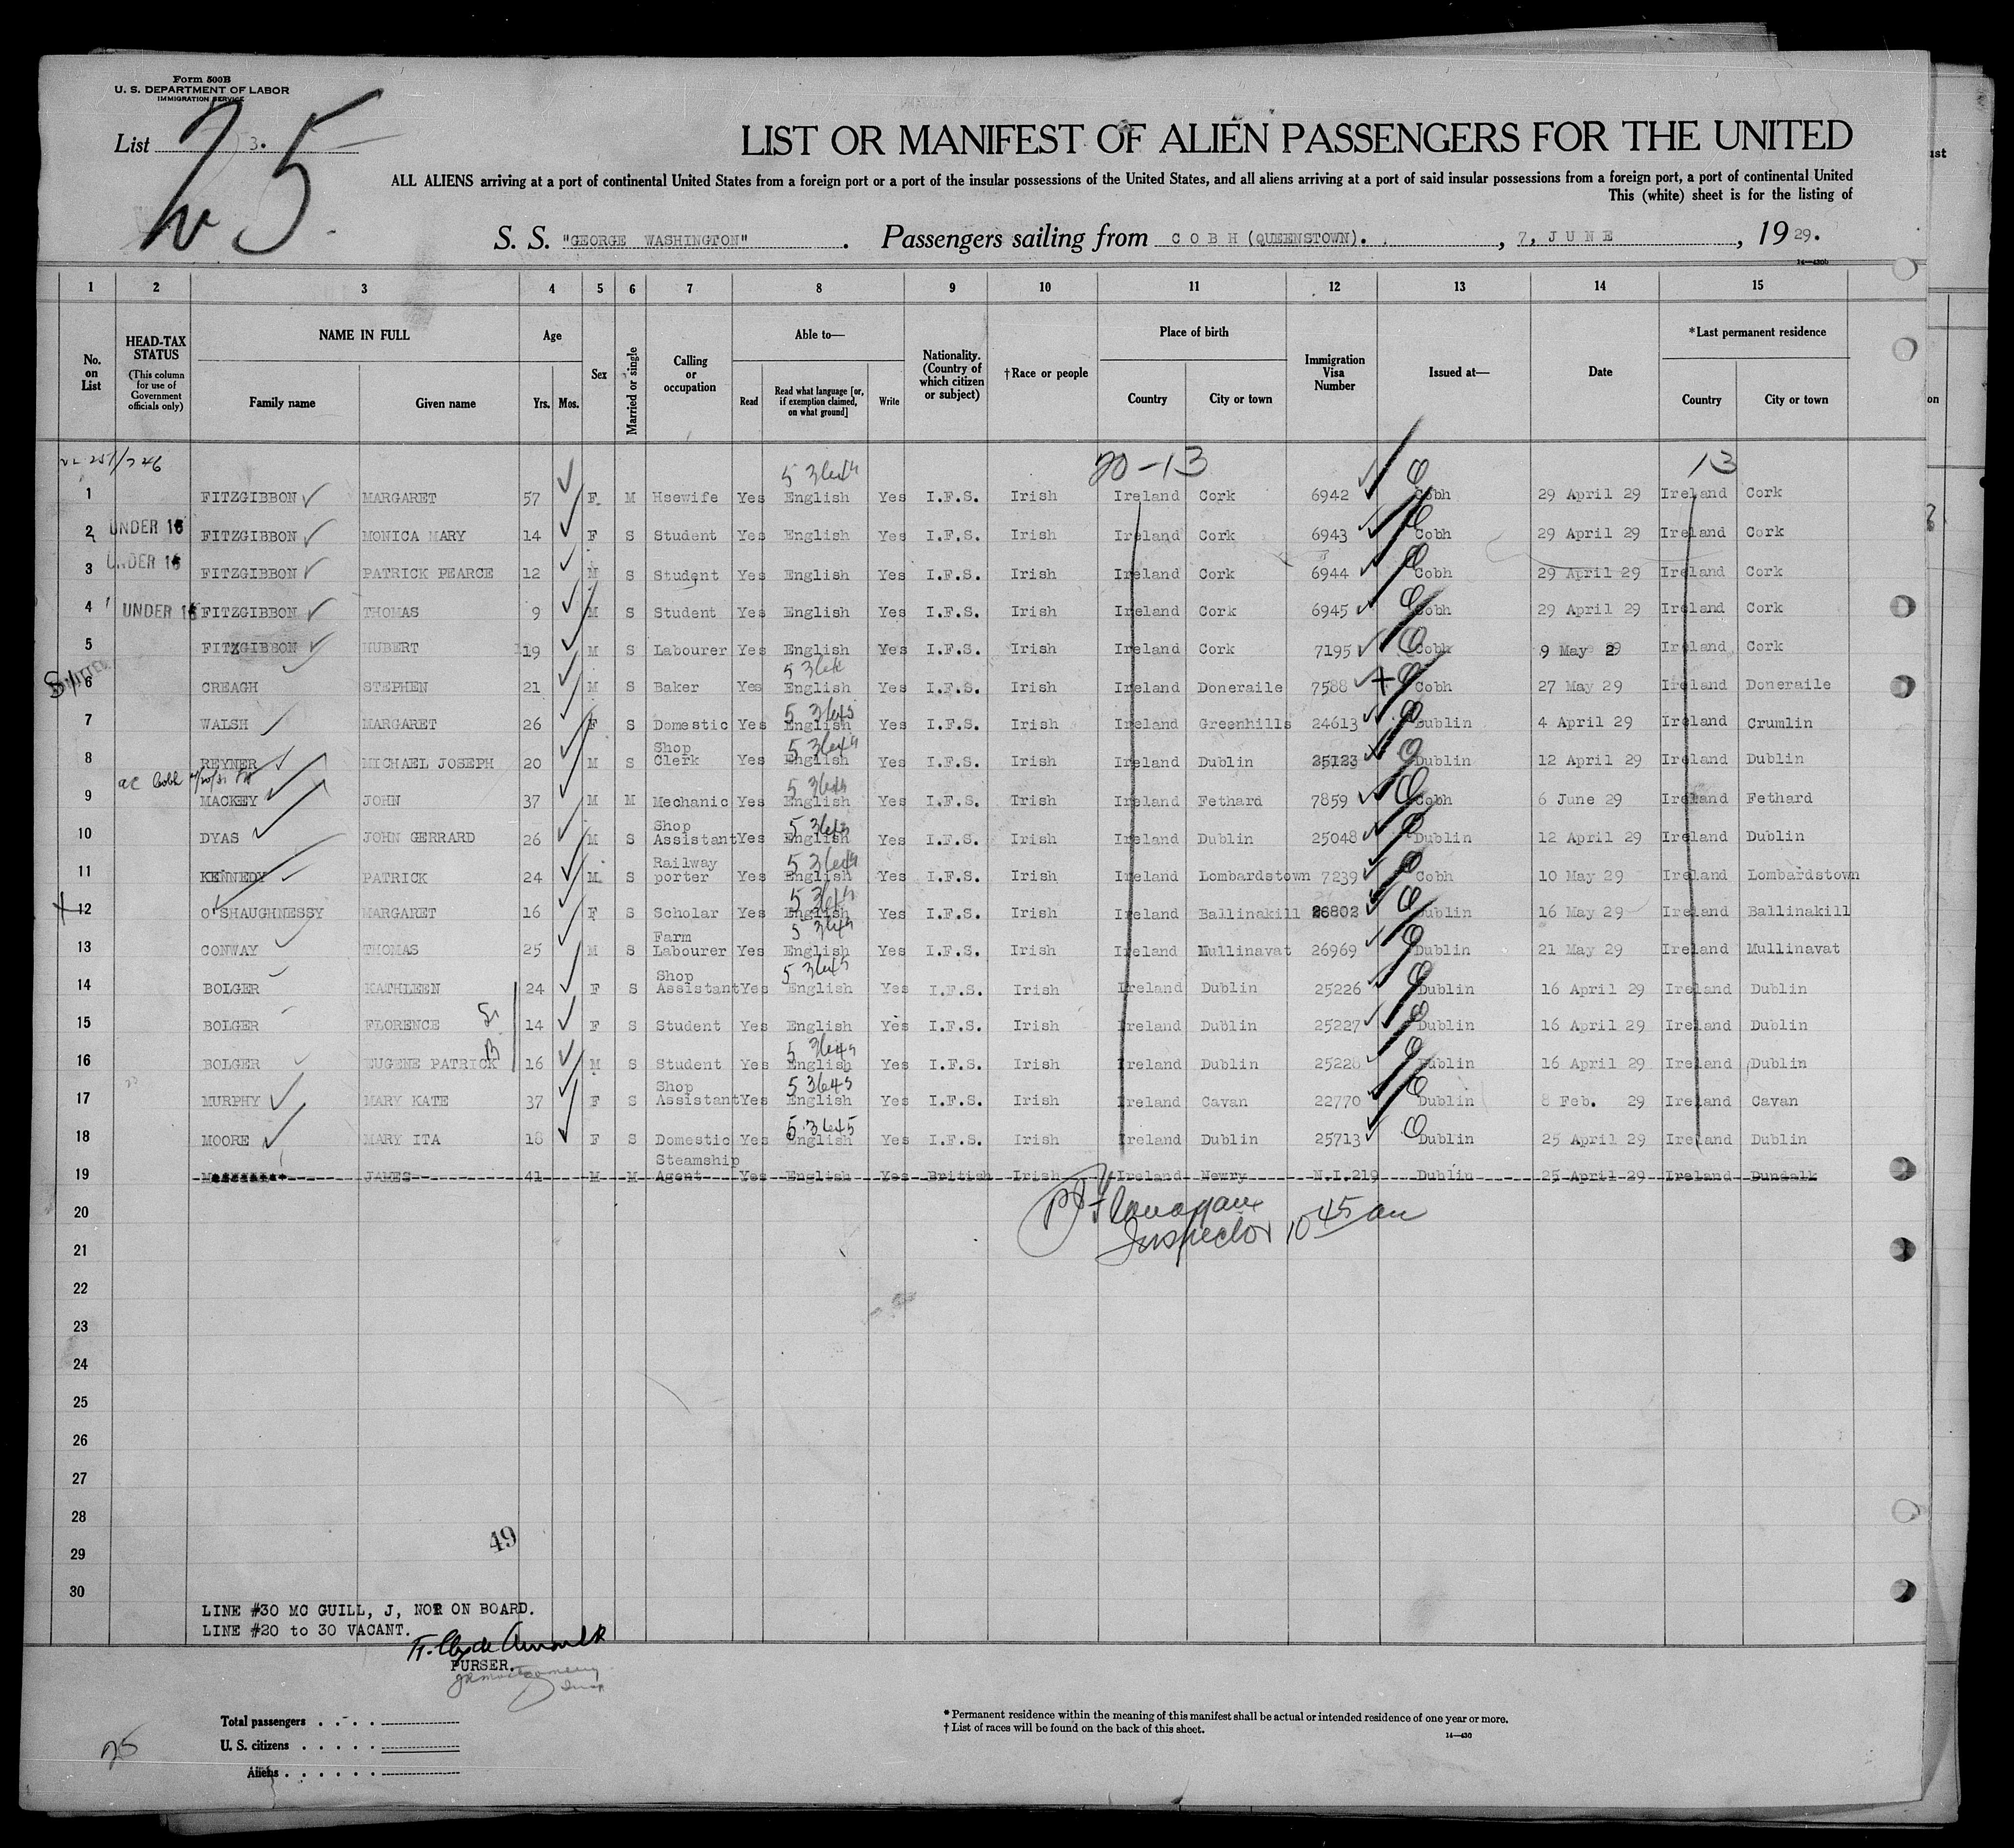 Form 500B
U. S. DEPARTMENT OF LABOR
IMMIGRATION SERVICE
List 3.
25
LIST OR MANIFEST OF ALIEN PASSENGERS FOR THE UNITED
ALL ALIENS arriving at a port of continental United States from a foreign port or a port of the insular possessions of the United States, and all aliens arriving at a port of said insular possessions from a foreign port, a port of continental United
This (white) sheet is for the listing of
S. S. "GEORGE WASHINGTON". Passengers sailing from C O B H (QUEENSTOWN)., 7, J U N E, 1929.
14—430b
1 2 3 4 5 6 7 8 9 10 11 12 13 14 15
No. on List
HEAD-TAX STATUS (This column for use of Government officials only)
NAME IN FULL Family name Given name
Age Yrs. Mos.
Sex
Married or single
Calling or occupation
Able to— Read Read what language [or, if exemption claimed, on what ground] Write
Nationality. (Country of which citizen or subject)
†Race or people
Place of birth Country City or town
Immigration Visa Number
Issued at—
Date
*Last permanent residence Country City or town
20-13 13
1 FITZGIBBON MARGARET 57 F M Hsewife Yes English Yes I.F.S. Irish Ireland Cork 6942 Cobh 29 April 29 Ireland Cork
2 UNDER 16 FITZGIBBON MONICA MARY 14 F S Student Yes English Yes I.F.S. Irish Ireland Cork 6943 Cobh 29 April 29 Ireland Cork
3 UNDER 16 FITZGIBBON PATRICK PEARCE 12 M S Student Yes English Yes I.F.S. Irish Ireland Cork 6944 Cobh 29 April 29 Ireland Cork
4 UNDER 16 FITZGIBBON THOMAS 9 M S Student Yes English Yes I.F.S. Irish Ireland Cork 6945 Cobh 29 April 29 Ireland Cork
5 FITZGIBBON HUBERT 19 M S Labourer Yes English Yes I.F.S. Irish Ireland Cork 7195 Cobh 9 May 29 Ireland Cork
6 CREAGH STEPHEN 21 M S Baker Yes English Yes I.F.S. Irish Ireland Doneraile 7588 Cobh 27 May 29 Ireland Doneraile
7 WALSH MARGARET 26 F S Domestic Yes 53645 English Yes I.F.S. Irish Ireland Greenhills 24613 Dublin 4 April 29 Ireland Crumlin
8 REYNER MICHAEL JOSEPH 20 M S Shop Clerk Yes English Yes I.F.S. Irish Ireland Dublin 25123 Dublin 12 April 29 Ireland Dublin
9 MACKEY JOHN 37 M M Mechanic Yes English Yes I.F.S. Irish Ireland Fethard 7859 Cobh 6 June 29 Ireland Fethard
10 DYAS JOHN GERRARD 26 M S Shop Assistant Yes English Yes I.F.S. Irish Ireland Dublin 25048 Dublin 12 April 29 Ireland Dublin
11 KENNEDY PATRICK 24 M S Railway porter Yes English Yes I.F.S. Irish Ireland Lombardstown 7239 Cobh 10 May 29 Ireland Lombardstown
12 O'SHAUGHNESSY MARGARET 16 F S Scholar Yes English Yes I.F.S. Irish Ireland Ballinakill 26802 Dublin 16 May 29 Ireland Ballinakill
13 CONWAY THOMAS 25 M S Farm Labourer Yes English Yes I.F.S. Irish Ireland Mullinavat 26969 Dublin 21 May 29 Ireland Mullinavat
14 BOLGER KATHLEEN 24 F S Shop Assistant Yes 53645 English Yes I.F.S. Irish Ireland Dublin 25226 Dublin 16 April 29 Ireland Dublin
15 BOLGER FLORENCE 14 F S Student Yes English Yes I.F.S. Irish Ireland Dublin 25227 Dublin 16 April 29 Ireland Dublin
16 BOLGER EUGENE PATRICK 16 M S Student Yes 53645 English Yes I.F.S. Irish Ireland Dublin 25228 Dublin 16 April 29 Ireland Dublin
17 MURPHY MARY KATE 37 F S Shop Assistant Yes 53645 English Yes I.F.S. Irish Ireland Cavan 22770 Dublin 8 Feb. 29 Ireland Cavan
18 MOORE MARY ITA 18 F S Domestic Yes 53645 English Yes I.F.S. Irish Ireland Dublin 25713 Dublin 25 April 29 Ireland Dublin
19 JAMES 41 M M Steamship Agent Yes English Yes British Irish Ireland Newry N.I.219 Dublin 25 April 29 Ireland Dundalk
20 Flanagan
21 Inspector 10 45 am
22
23
24
25
26
27
28
29
49
30
LINE #30 MC GUILL, J, NOT ON BOARD.
LINE #20 to 30 VACANT.
PURSER.
JRMontgomery
Insp
Total passengers
U. S. citizens
Aliens
25
* Permanent residence within the meaning of this manifest shall be actual or intended residence of one year or more.
† List of races will be found on the back of this sheet.
14—430